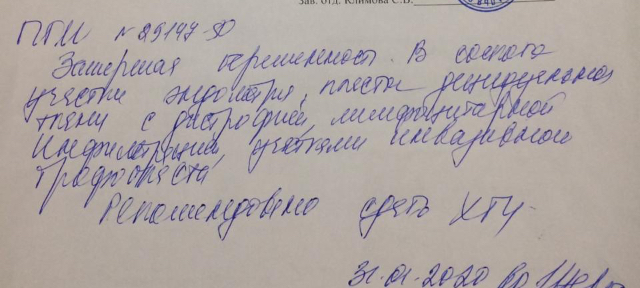 Зав. отд. Климова С.В.
ПГИ №25147-Ф
Замершая беременность. В соскобе
участки эндометрия, пласты децидуальной
ткани с дистрофией, лимфоцитарной
инфильтрацией, участками инвазивной
трофобласта
Рекомендовано сдать ХГЧ
31-01-2020